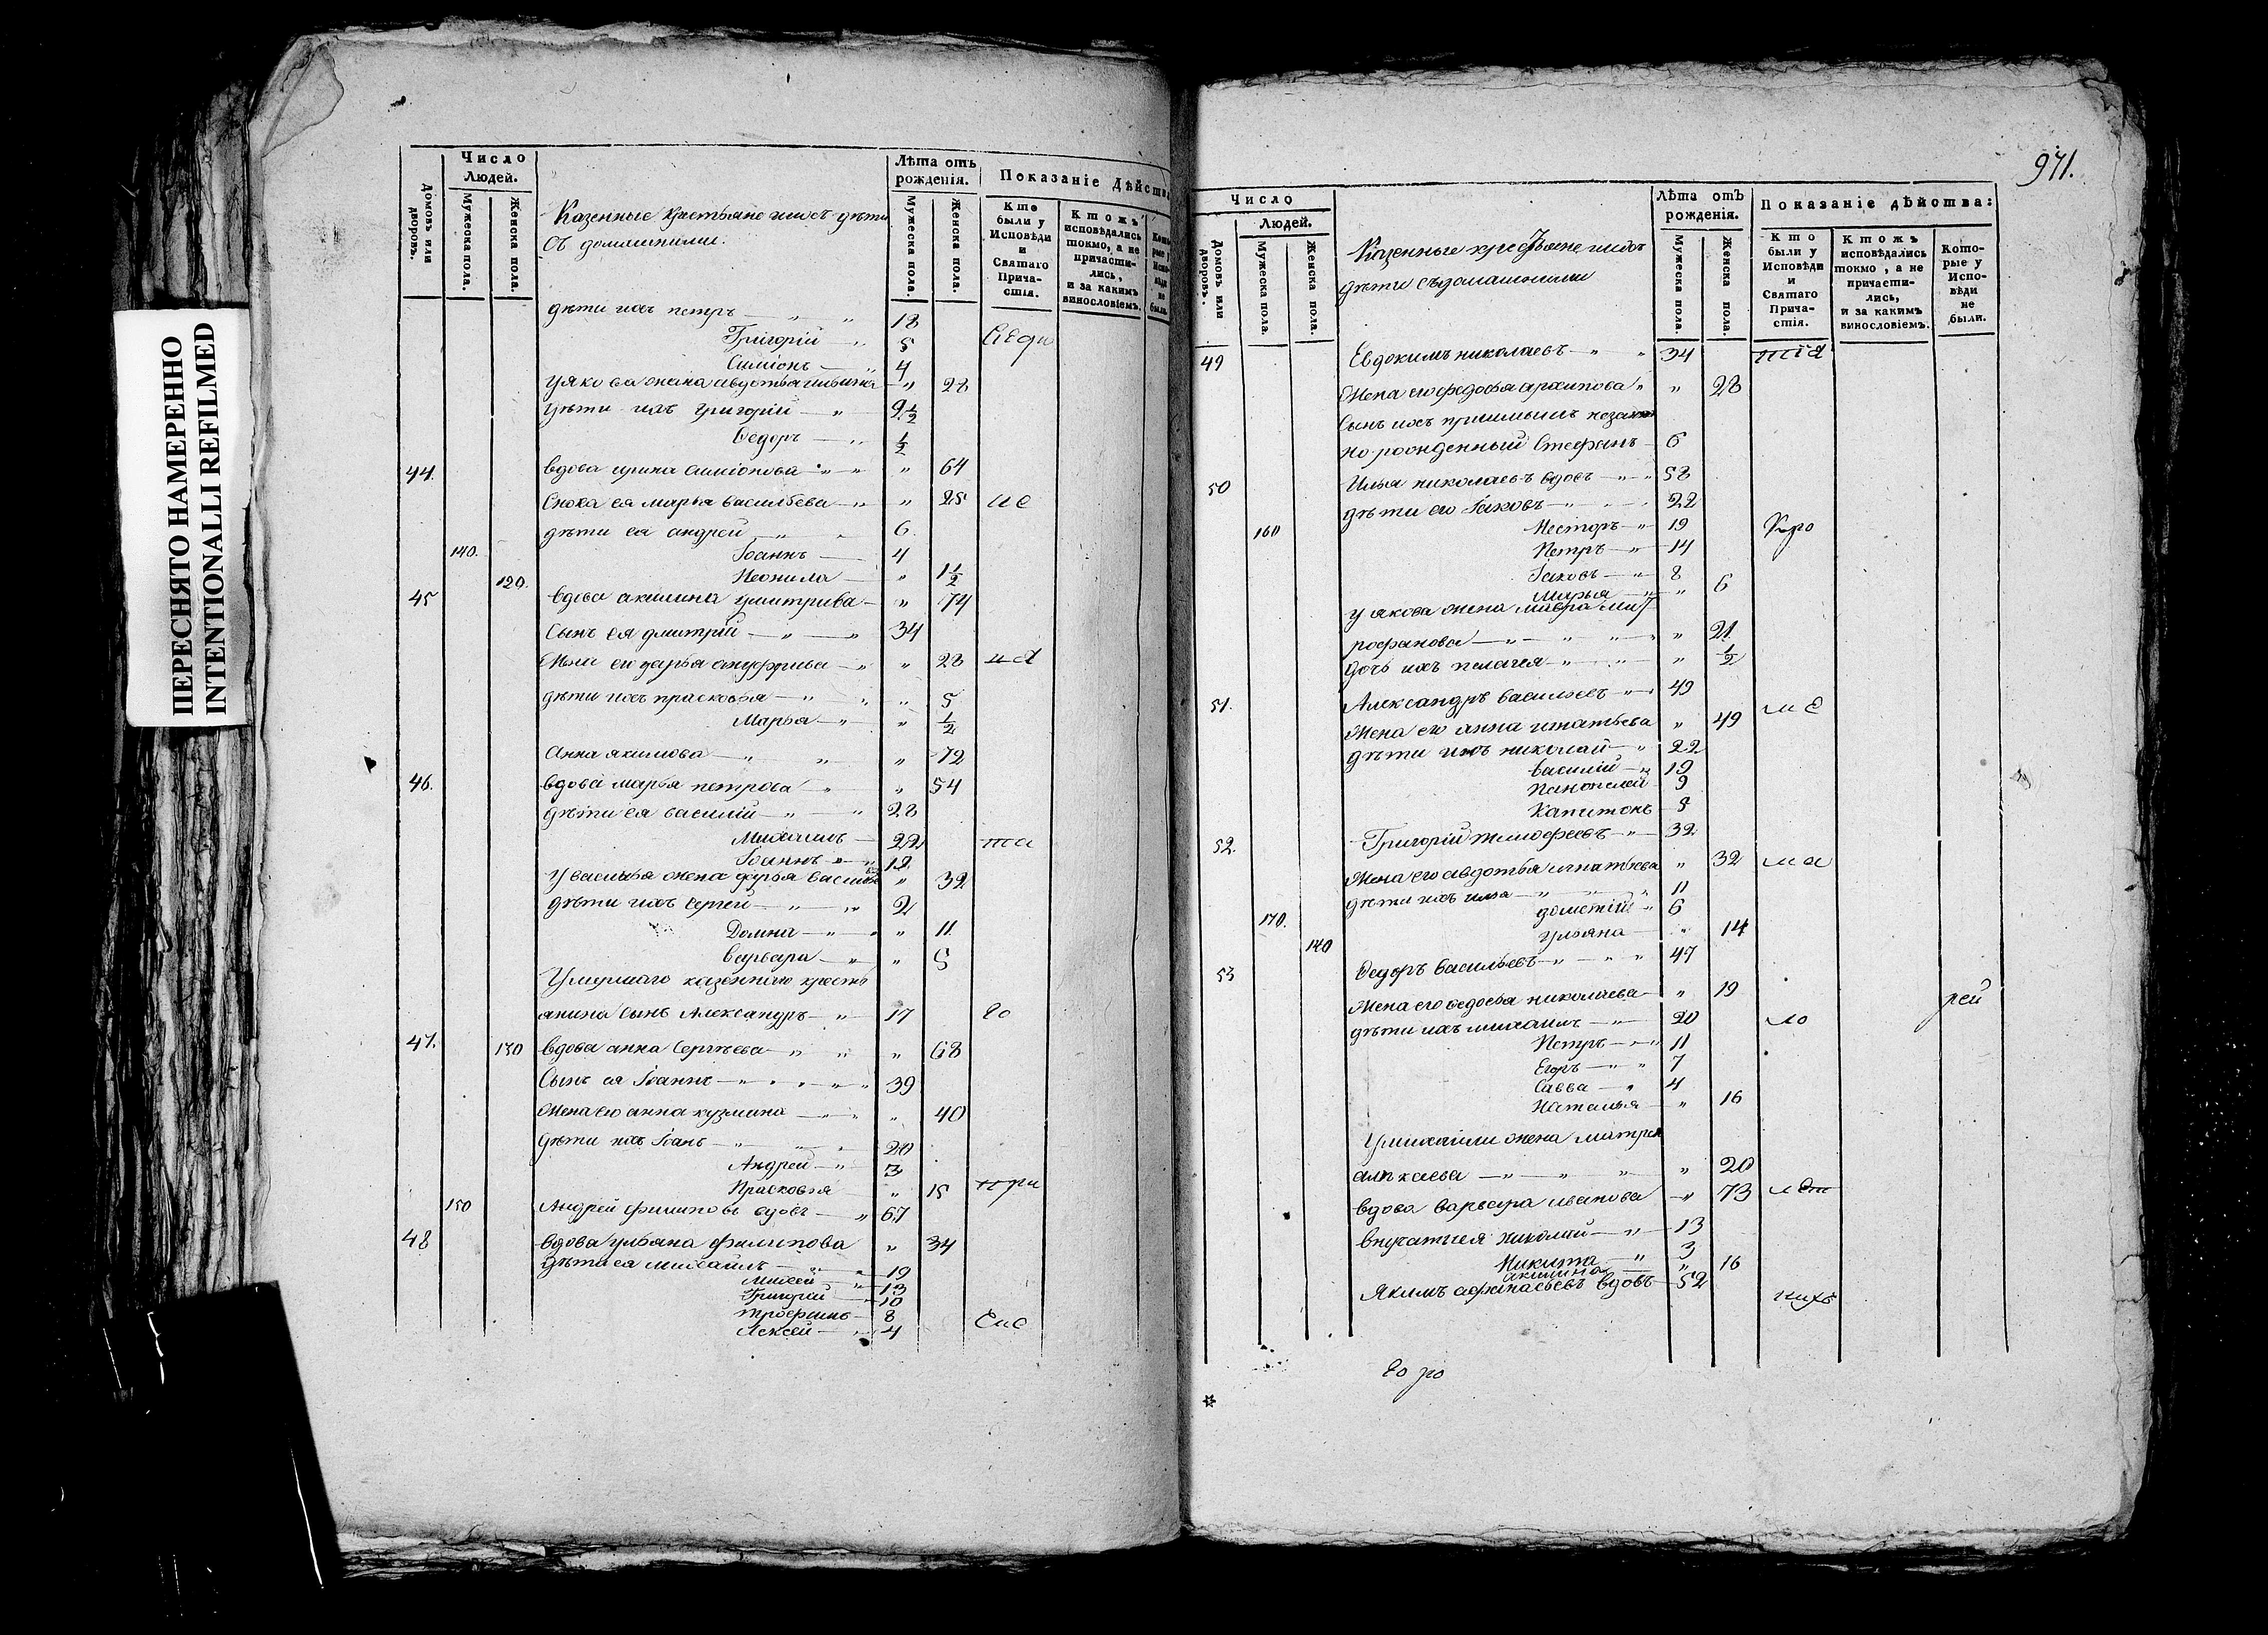 ПЕРЕСНЯТО НАМЕРЕННО
INTENTIONALLI REFILMED
Домовъ или дворовъ.
Число Людей.
Мужеска пола.
Женска пола.
Казенные крестьяне ихъ дѣти
съ домашними.
Лѣта отъ рожденія.
Мужеска пола.
Женска пола.
Показаніе Дѣйства
Кто были у Исповѣди и Святаго Причастія.
Ктожъ исповѣдались токмо, а не причастились, и за какимъ винословіемъ.
дѣти ихъ петръ — " " 18
Григорій — " 5
Симіонъ — " 4
у яко ва жена авдотья — " 28
дѣти ихъ григорій — " 9 1/2
Ѳедоръ — " 1/2
44. вдова ирина симіонова " " " 64
Сноха ея марья васильева — " " 25 ис
дѣти ея андрей — " 6
140. Іоаннъ — 4
120. Неонила — " 1 1/2
45 вдова акилина дмитрива — " 74
Сынъ ея дмитрій — " — " 34
Жена его дарья ануфрива — " " 28
дѣти ихъ прасковья — " " " 5
Марья — " " 1/2
Анна якимова — " " " 72
46. вдова марья петрова — " " 54
дѣти ея василій — " " 28
Михаилъ — 22 та
Іоаннъ — " 12
У василья жена дарья васильева " 32
дѣти ихъ Сергей — " " 2
Домна — " " " 11
варвара — " " 5
Умершаго казеннаго кресть
янина сынъ Александръ — " 17 го
47. 130 вдова анна Сергѣева — " " " 68
Сынъ ея Іоаннъ — " " " " " 39
Жена его анна кузмина — " " " 40
дѣти ихъ Іоанъ — " " " 20
Андрей — " 3
Прасковья — " 15 при
150 Андрей филиповъ вдовъ — " 67
48 вдова ульяна филипова " 34
Дѣти ея михаилъ — " " 19
Михей — " 13
Григорій — " 10
трофимъ — 8
Алексей — " 4
971.
Домовъ или дворовъ.
Число Людей.
Мужеска пола.
Женска пола.
Казенные крестьяне ихъ
дѣти съ домашними
Лѣта отъ рожденія.
Мужеска пола.
Женска пола.
Показаніе дѣйства:
Кто были у Исповѣди и Святаго Причастія.
Ктожъ исповѣдались токмо, а не причастились, и за какимъ винословіемъ.
Которые у Исповѣди не были.
49 Евдокимъ николаевъ — " " 34
Жена его федосья архипова " " 28
Сынъ ихъ приимышъ незакон
но рожденный Стефанъ — 6
50 Илья николаевъ вдовъ — " " 58
дѣти его Іаковъ — " " " 22
160 Несторъ — " 19
Петръ — " 14
Іаковъ — " 8
Марья — " " 6
у якова жена мавра мит
рофанова — " " " " " 21
Дочь ихъ пелагея — " " " 1/2
51. Александръ васильевъ — " 49
Жена его анна игнатьева " 49
дѣти ихъ николай — " 22
василій — " 19
Пантелей 9
Капитонъ — 5
52. Григорій тимофеевъ — " 32
Жена его авдотья игнатьева " 32
дѣти ихъ илья — " " " 11
170. дометій — " 6
140 ульяна — " 14
53 Ѳедоръ васильевъ — " " " 47
Жена его ѳедосья николаева — " 19 рей
дѣти ихъ михаилъ — " 20
Петръ — " " 11
Егоръ — " " 7
Савва — " 4
Наталья — " 16
У михаилы жена матрена
— " " " " 20
вдова варвара иванова — " 73
внучатыея николай — " 13
Никита — " 3
акилина " 16
Якимъ афанасьевъ вдовъ — 52 нихъ